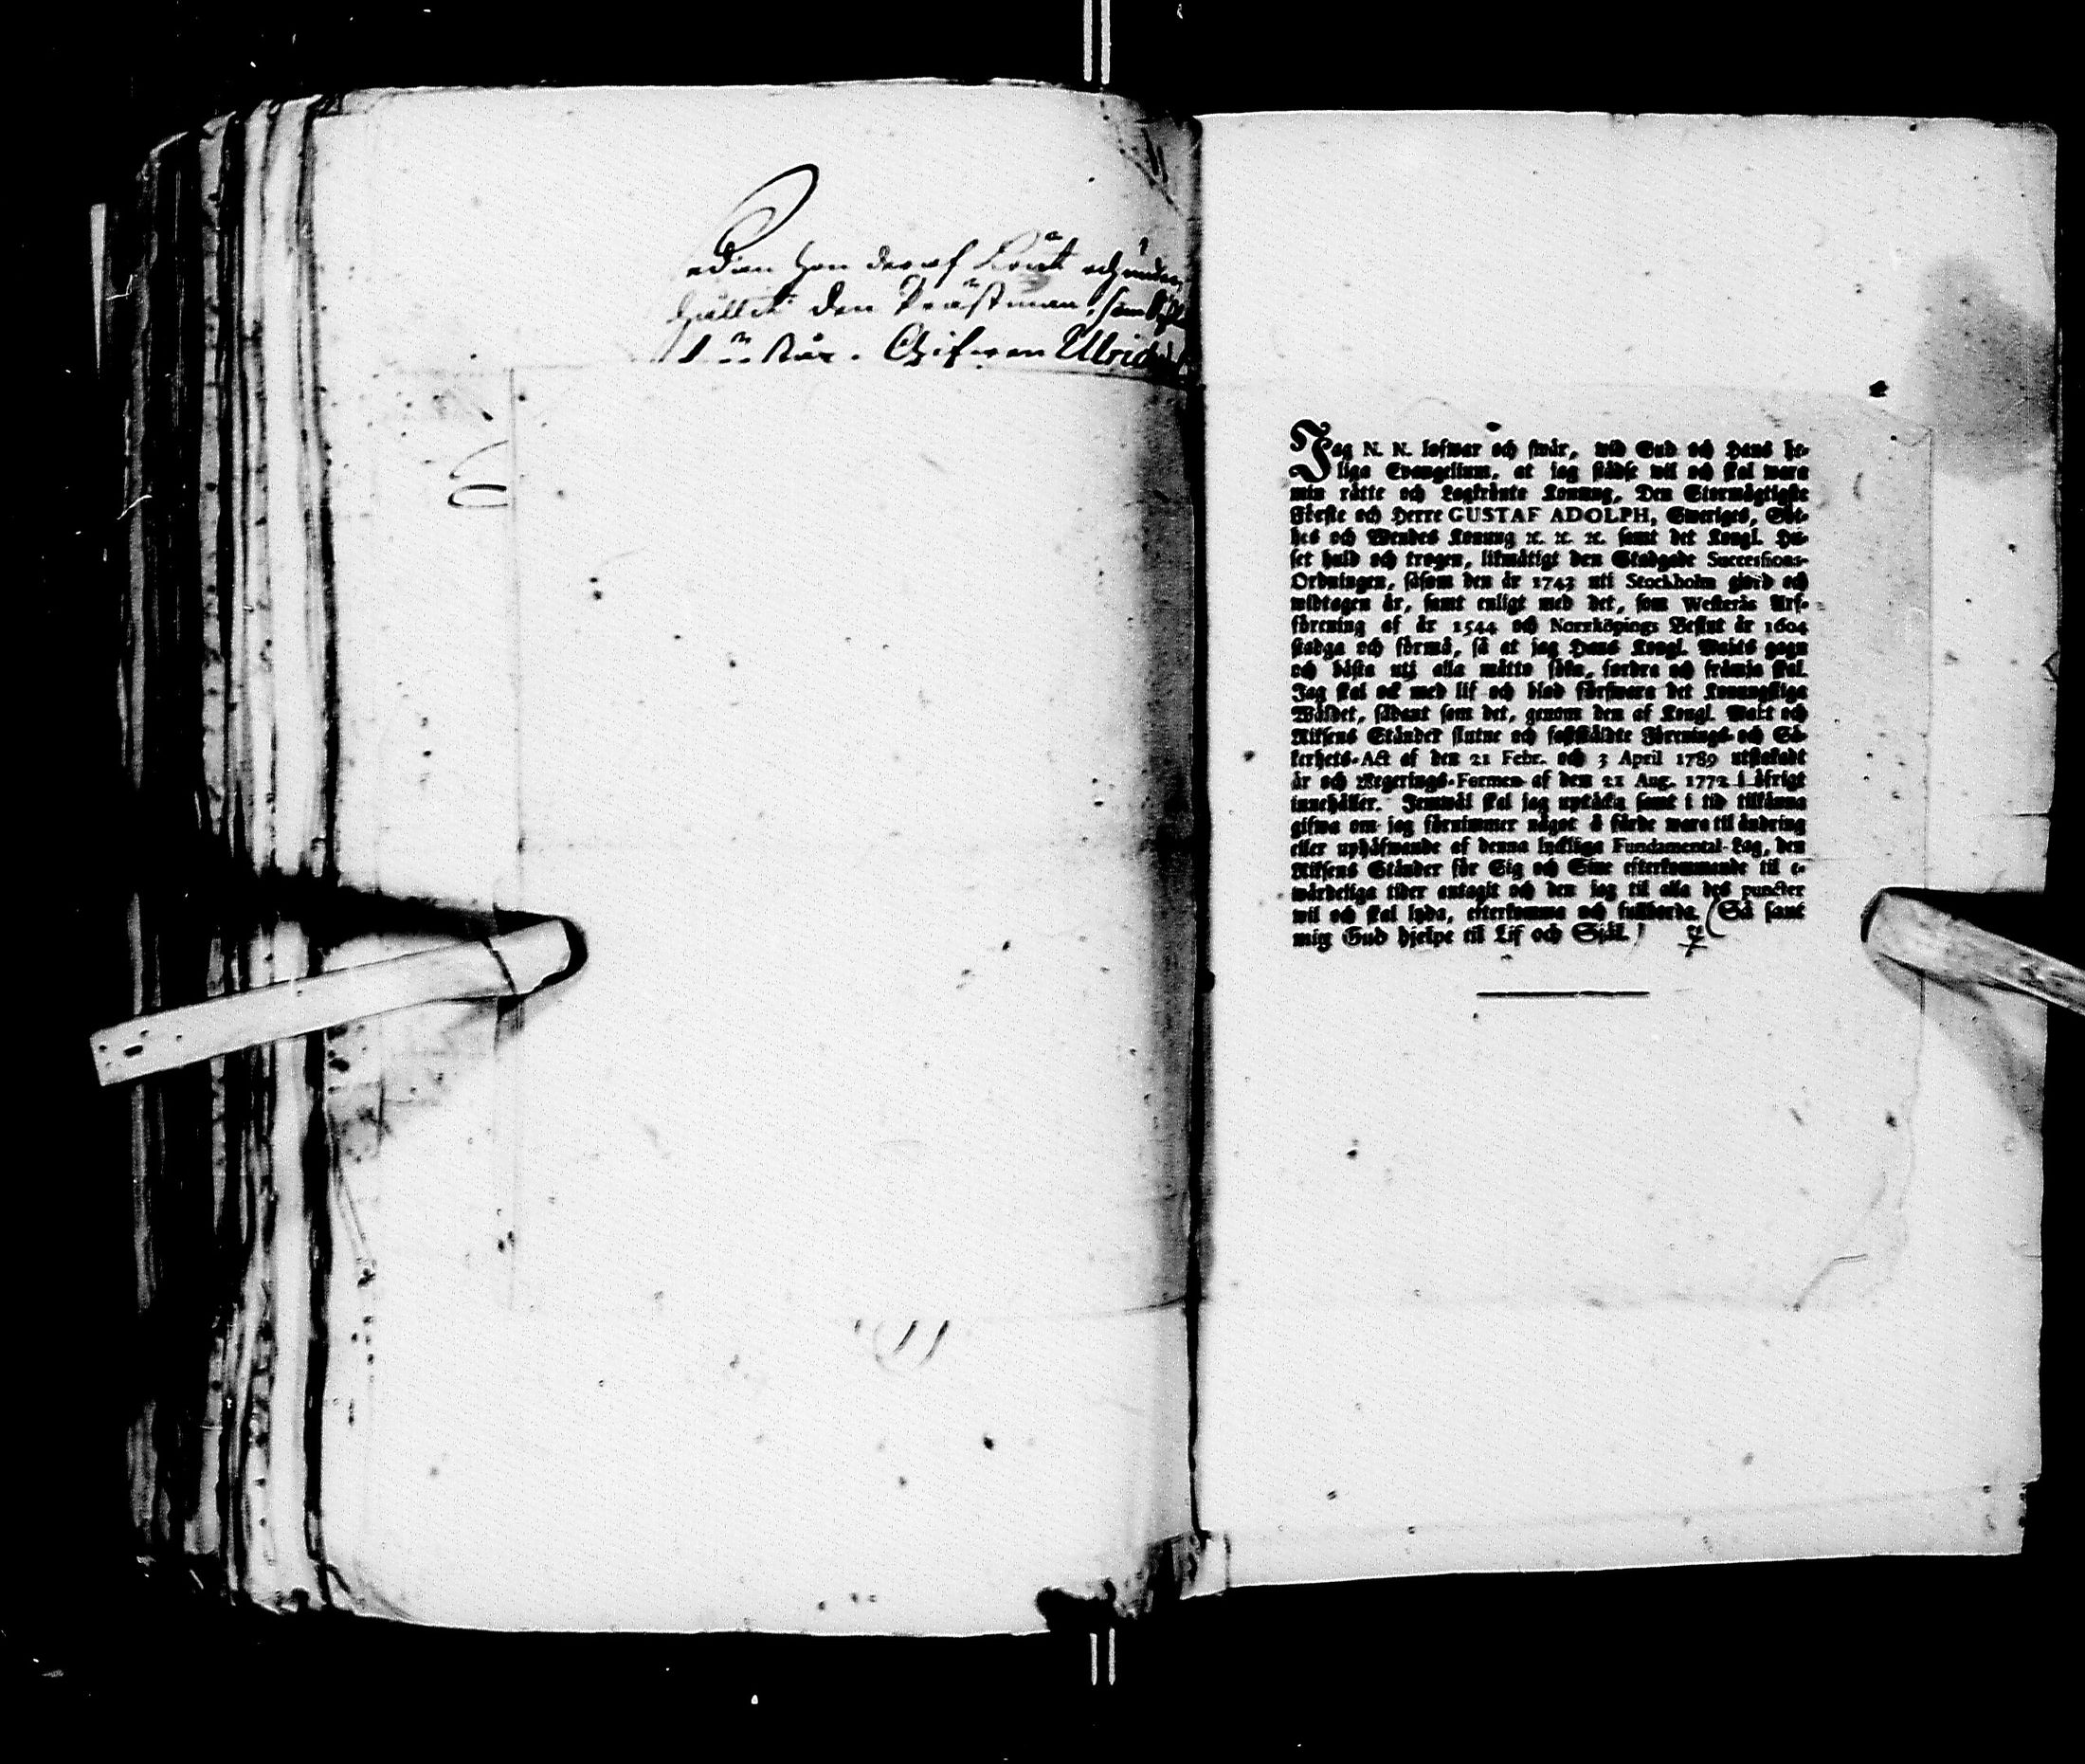 edan hon deraf
hållit den Prästman, som
Gifwen Ulrica
Jag N. N. lofwar och swår, wid Gud och Hans he-
liga Evangelium, at jag städse wil och skal wara
min rätte och Lagkrönte Konung, Den Stormägtigste
Förste och Herre GUSTAF ADOLPH, Sweriges, Göt-
hes och Wendes Konung ꝛc. ꝛc. ꝛc. samt det Kongl. Hu-
set huld och trogen, likmätigt den Stadgade Successions-
Ordningen, såsom den år 1743 uti Stockholm giord och
widtagen är, samt enligt med det, som Westerås Arf-
förening af år 1544 och Norrköpings Beslut år 1604
stadga och förmå, så at jag Hans Kongl. Maj:ts gagn
och bästa utj alla måtto söka, fordra och främja skal.
Jag skal ock med lif och blod förswara det Konungsliga
Wäldet, sådant som det, genom den af Kongl. Maj:t och
Riksens Ständer slutne och fastställdte Förenings- och Sä-
kerhets-Act af den 21 Febr. och 3 April 1789 utstakadt
är och Regerings-Formen af den 21 Aug. 1772 i öfrigt
innehåller. Jemwäl skal jag uptäcka samt i tid tillkänna
gifwa om jag förnimmer något å färde wara til ändring
eller uphäfwande af denna lyckliga Fundamental-Lag, den
Riksens Ständer för Sig och Sine efterkommande til e-
wärdeliga tider antagit och den jag til alla des puncter
wil och skal lyda, efterkomma och fullborda. (Så sant
mig Gud hjelpe til Lif och Själ.)